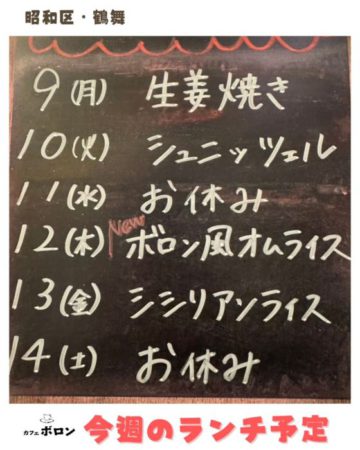 昭和区・鶴舞
9(月) 生姜焼き
10(火) シュニッツェル
11(水) お休み
New
12(木) ボロン風オムライス
13(金) シシリアンライス
14(土) お休み
カフェ ボロン 今週のランチ予定